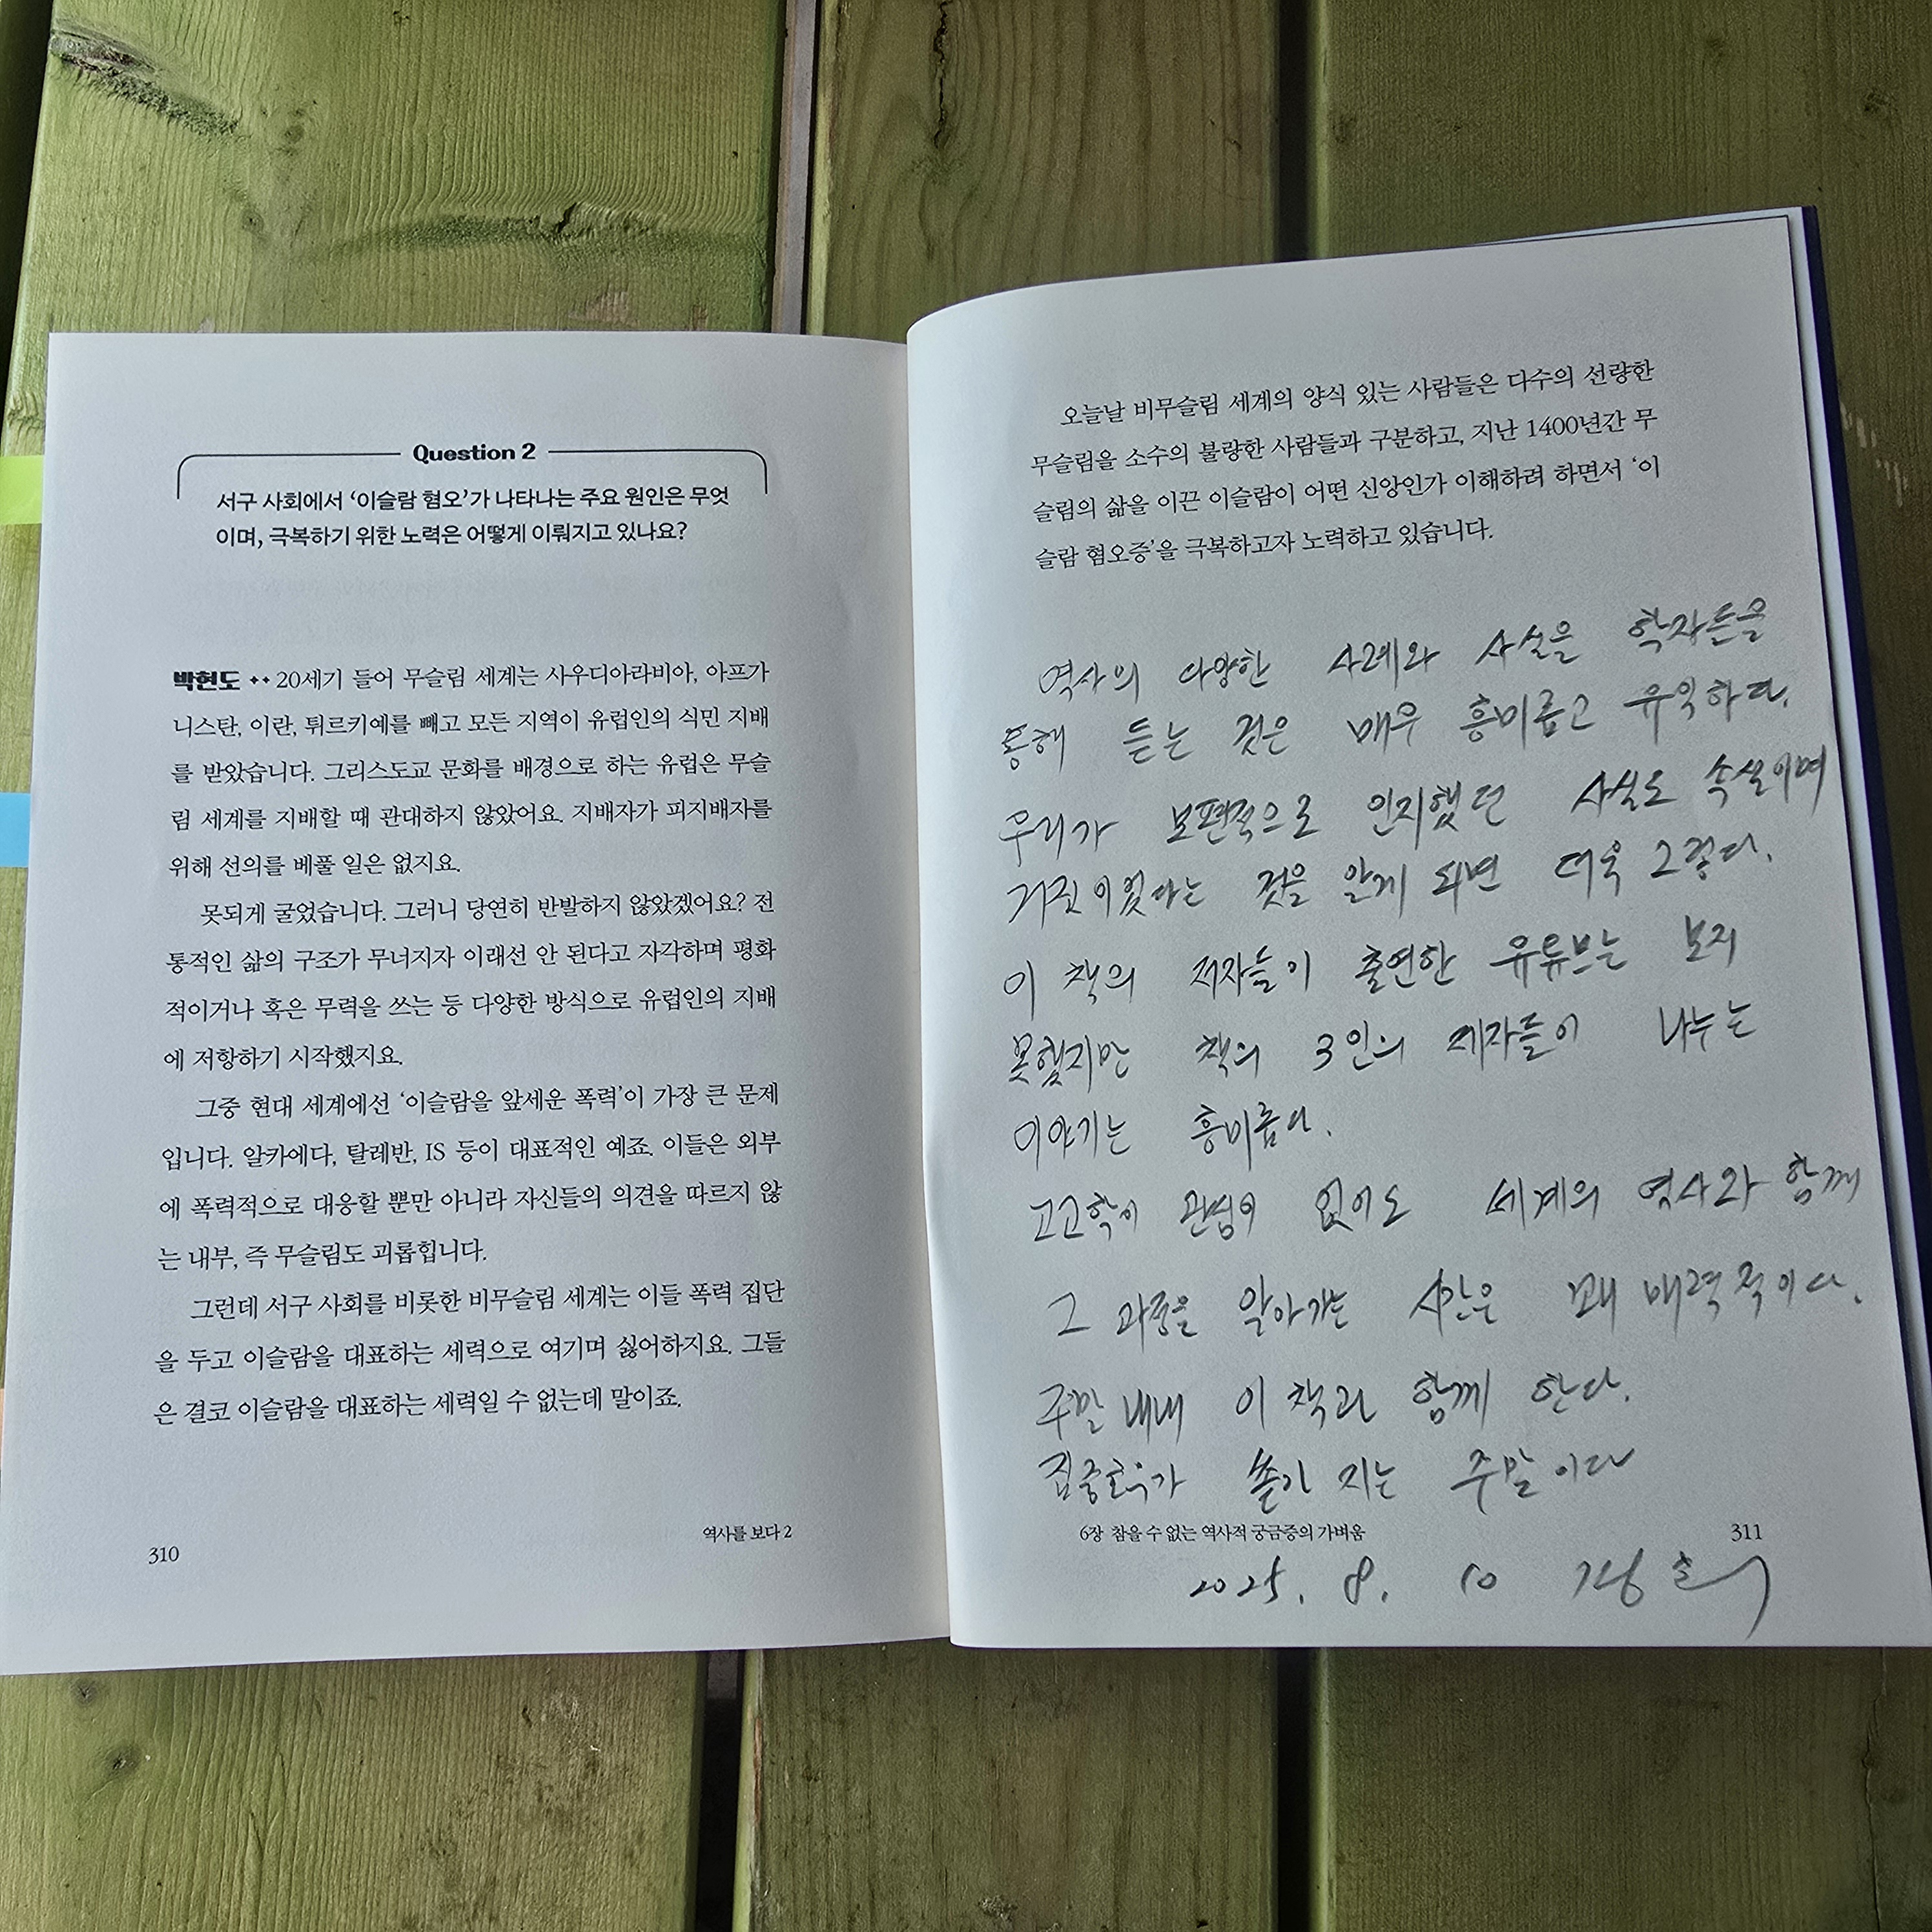 Question 2
서구 사회에서 ‘이슬람 혐오’가 나타나는 주요 원인은 무엇
이며, 극복하기 위한 노력은 어떻게 이뤄지고 있나요?
박현도 ●● 20세기 들어 무슬림 세계는 사우디아라비아, 아프가
니스탄, 이란, 튀르키예를 빼고 모든 지역이 유럽인의 식민 지배
를 받았습니다. 그리스도교 문화를 배경으로 하는 유럽은 무슬
림 세계를 지배할 때 관대하지 않았어요. 지배자가 피지배자를
위해 선의를 베풀 일은 없지요.
못되게 굴었습니다. 그러니 당연히 반발하지 않았겠어요? 전
통적인 삶의 구조가 무너지자 이래선 안 된다고 자각하며 평화
적이거나 혹은 무력을 쓰는 등 다양한 방식으로 유럽인의 지배
에 저항하기 시작했지요.
그중 현대 세계에선 ‘이슬람을 앞세운 폭력’이 가장 큰 문제
입니다. 알카에다, 탈레반, IS 등이 대표적인 예죠. 이들은 외부
에 폭력적으로 대응할 뿐만 아니라 자신들의 의견을 따르지 않
는 내부, 즉 무슬림도 괴롭힙니다.
그런데 서구 사회를 비롯한 비무슬림 세계는 이들 폭력 집단
을 두고 이슬람을 대표하는 세력으로 여기며 싫어하지요. 그들
은 결코 이슬람을 대표하는 세력일 수 없는데 말이죠.
310
역사를 보다 2
오늘날 비무슬림 세계의 양식 있는 사람들은 다수의 선량한
무슬림을 소수의 불량한 사람들과 구분하고, 지난 1400년간 무
슬림의 삶을 이끈 이슬람이 어떤 신앙인가 이해하려 하면서 ‘이
슬람 혐오증’을 극복하고자 노력하고 있습니다.
역사의 다양한 사례와 사실을 학자들을
통해 듣는 것은 매우 흥미롭고 유익하다.
우리가 보편적으로 인지했던 사실도 속설이며
거짓이었다는 것을 알게 되면 더욱 그렇다.
이 책의 저자들이 출연한 유튜브는 보지
못했지만 책의 3인의 저자들이 나누는
이야기는 흥미롭다.
고고학에 관심이 없어도 세계의 역사와 함께
그 과정을 알아가는 시간은 꽤 매력적이다.
주말 내내 이 책과 함께 한다.
집중호우가 쏟아 지는 주말이다
6장 참을 수 없는 역사적 궁금증의 가벼움
311
2025. 8. 10